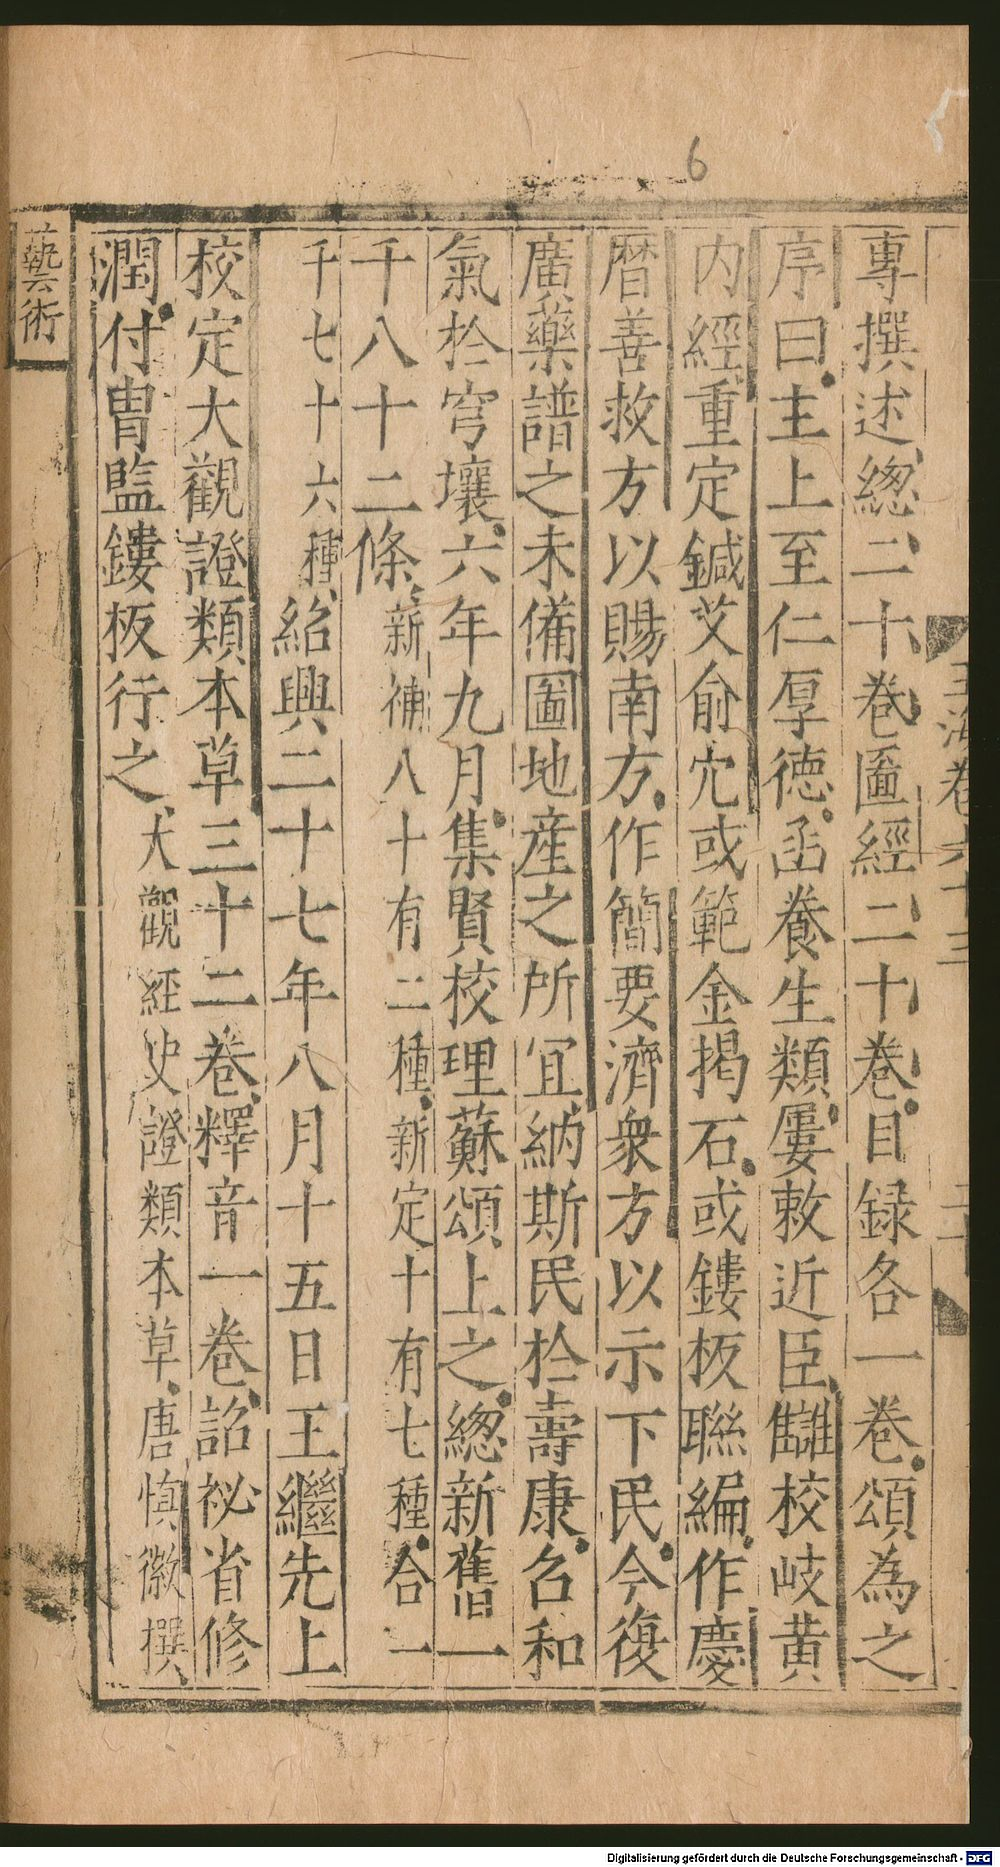 6
專撰述總二十卷圖經二十卷目録各一卷頌為之
序曰主上至仁厚德函養生類屢敕近臣讎校岐黄
内經重定鍼艾俞穴或範金揭石或鏤板聯編作慶
曆善救方以賜南方作簡要濟衆方以示下民今復
廣藥譜之未備圖地産之所冝納斯民於壽康召和
氣於穹壤六年九月集賢校理蘇頌上之總新舊一
千八十二條新補八十有二種新定十有七種合一
千七十六種紹興二十七年八月十五日王繼先上
校定大觀證類本草三十二卷釋音一卷詔祕省修
潤付胄監鏤板行之大觀經史證類本草唐慎微撰
藝術
玉海卷六十三
Digitalisierung gefördert durch die Deutsche Forschungsgemeinschaft - DFG